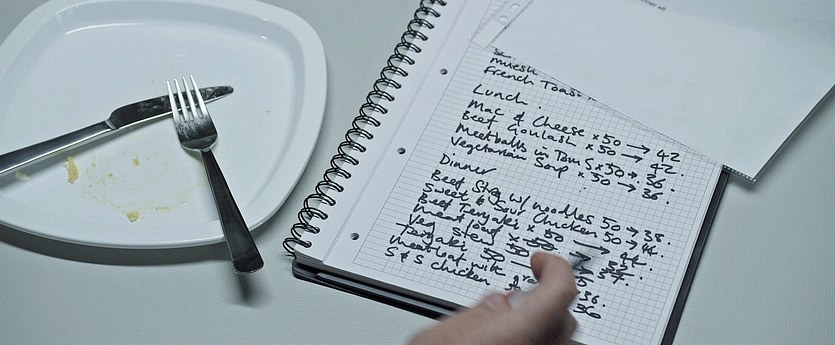 muesli
French Toast
Lunch.
Mac & Cheese x50 → 42
Beef Goulash x50 → 42.
Meatballs in Tom S x50 → 36
Vegetarian Soup x50 → 36.
Dinner
Beef Stew w/ noodles 50 → 38.
Sweet & Sour Chicken 50 → 44.
Beef Teryaki x 50 →
meat loaf x 50
Veg stew 50
Teryaki 50
meatloaf
S & S chicken 36